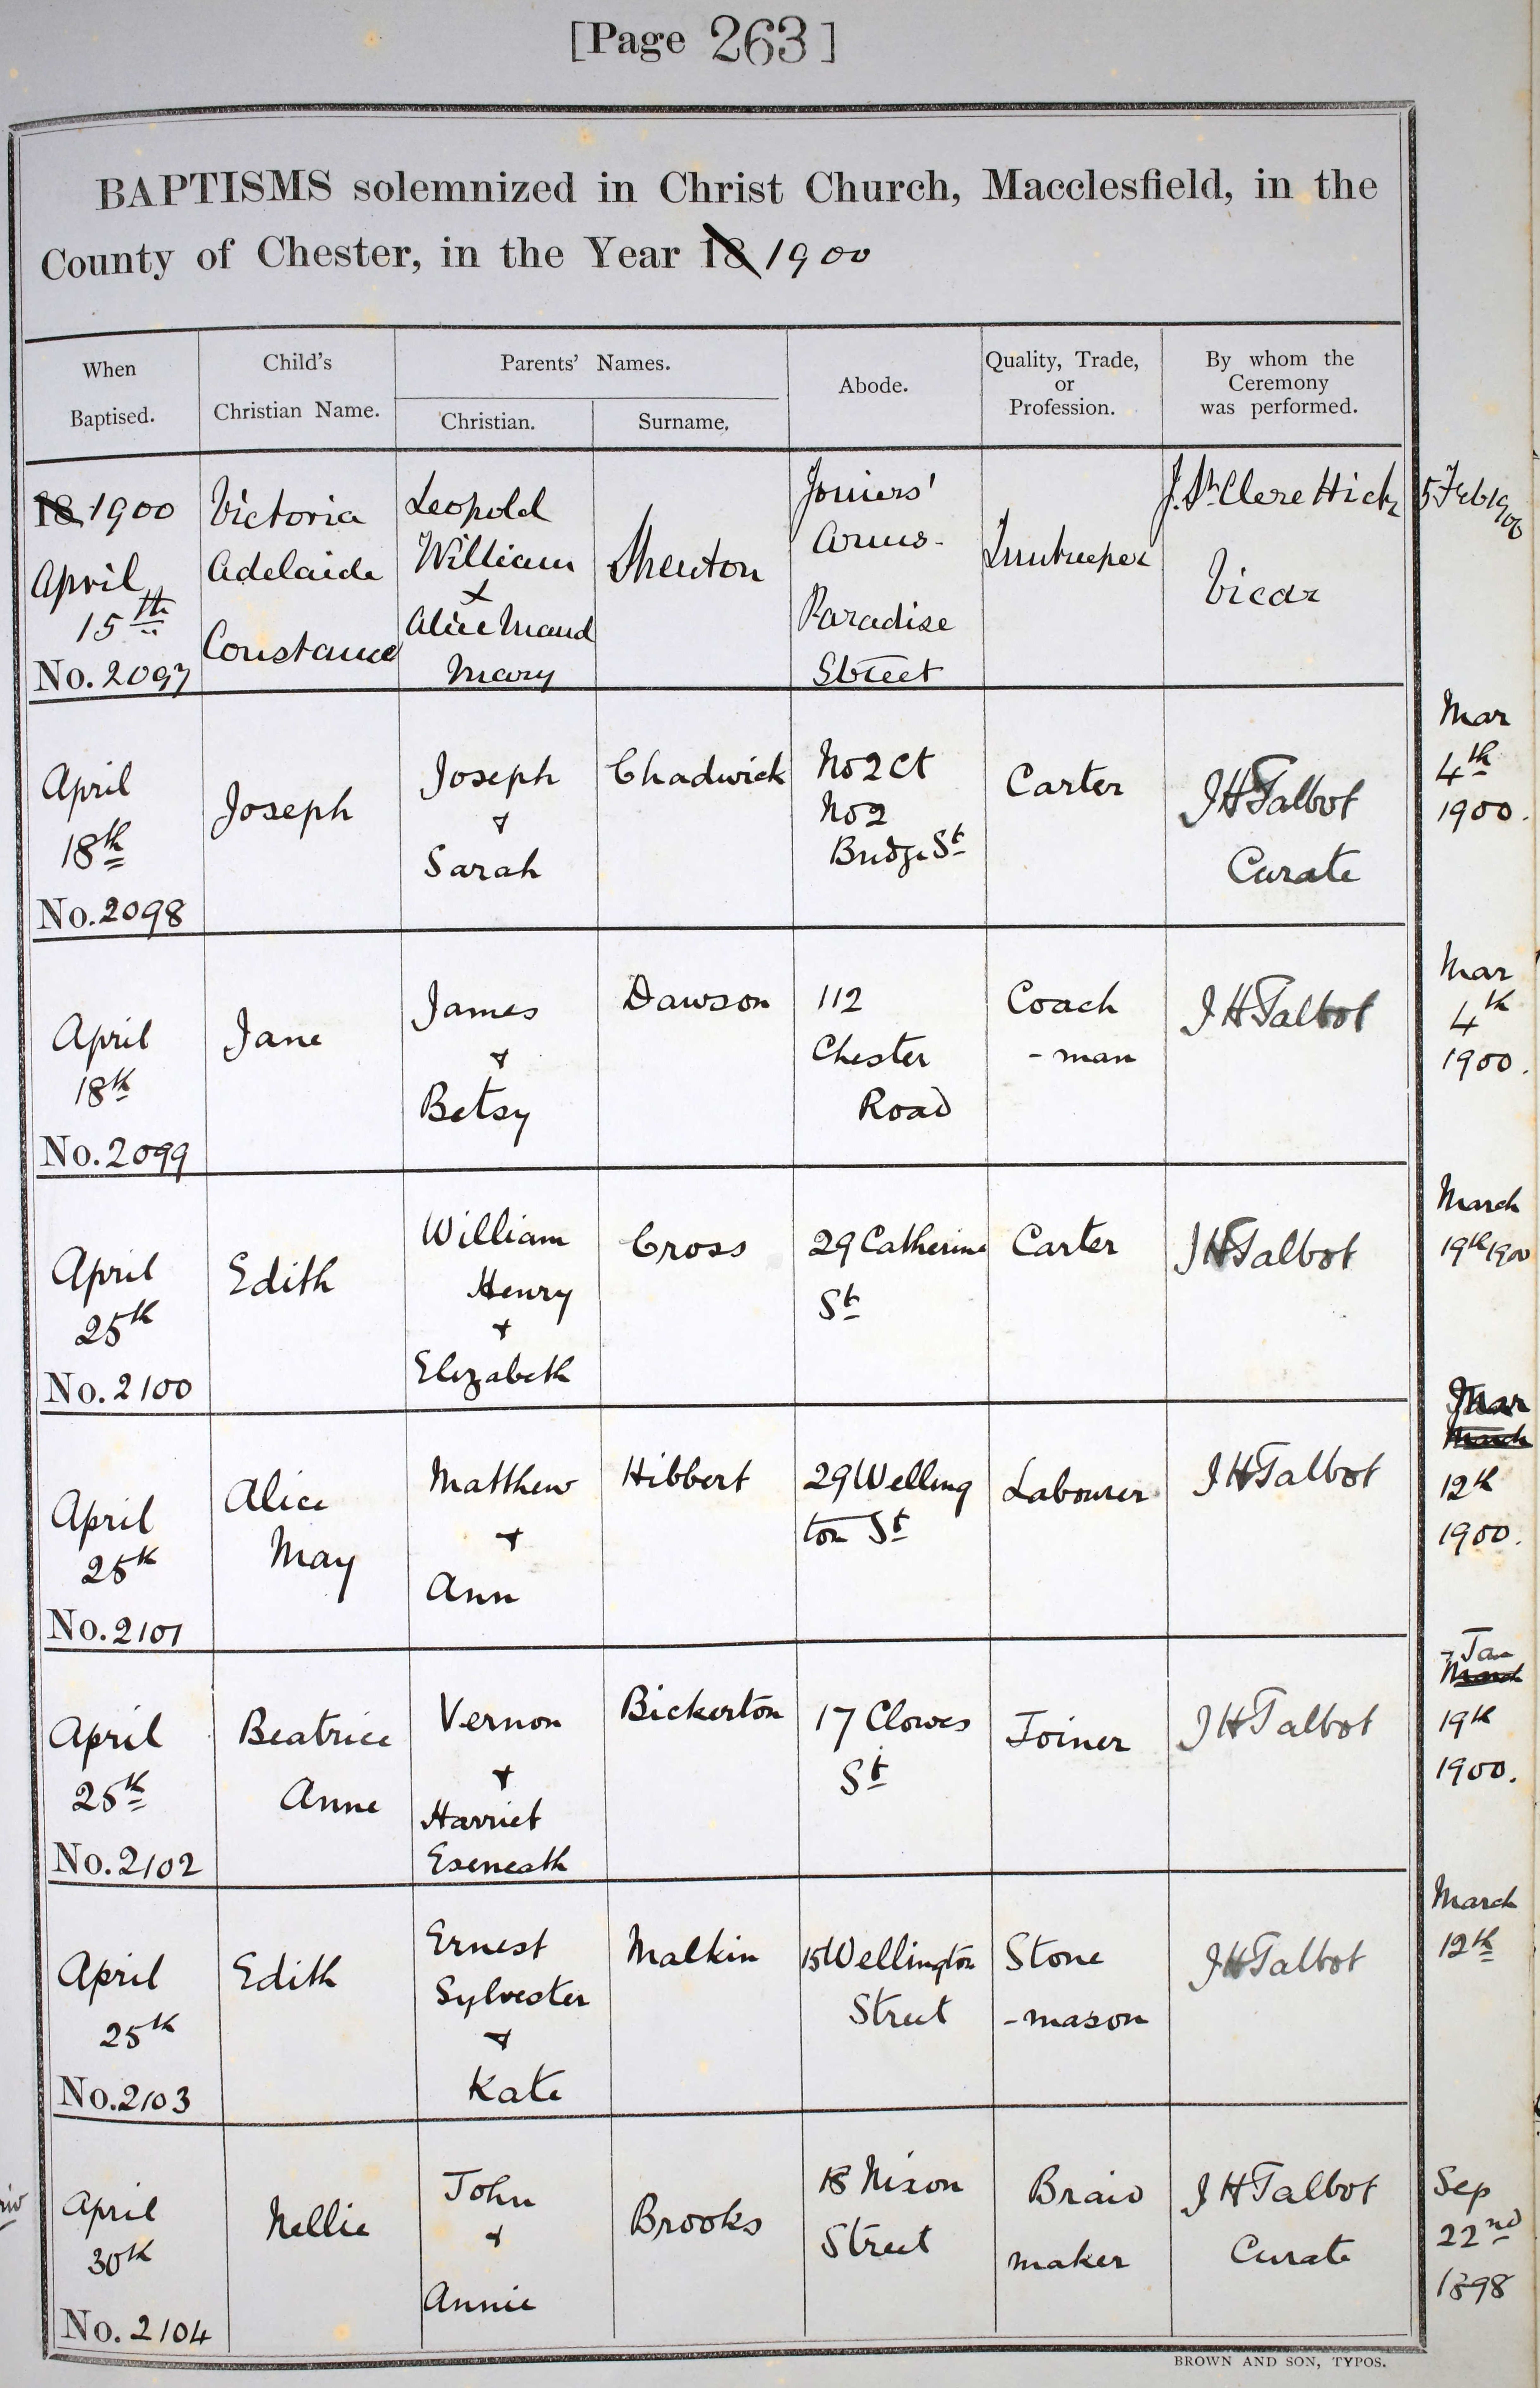 [Page 263]
BAPTISMS solemnized in Christ Church, Macclesfield, in the
County of Chester, in the Year 18 1900
When
Baptised.
Child's
Christian Name.
Parents' Names.
Christian.
Surname.
Abode.
Quality, Trade,
or
Profession.
By whom the
Ceremony
was performed.
18 1900
April
15th
No. 2097
Victoria
Adelaide
Constance
Leopold
William
+
Alice Maud
Mary
Shenton
Joiners'
Arms.
Paradise
Street
Innkeeper
J. St Clere Hick
Vicar
5 Feb 1900
April
18th
No. 2098
Joseph
Joseph
+
Sarah
Chadwick
No 2 Ct
No 2
Bridge St
Carter
J H Talbot
Curate
Mar
4th
1900.
April
18th
No. 2099
Jane
James
+
Betsy
Dawson
112
Chester
Road
Coach
-man
J H Talbot
Mar
4th
1900.
April
25th
No. 2100
Edith
William
Henry
+
Elizabeth
Cross
29 Catherine
St
Carter
J H Talbot
March
19th 1900
April
25th
No. 2101
Alice
May
Matthew
+
Ann
Hibbert
29 Welling
ton St
Labourer
J H Talbot
Mar
March
12th
1900.
April
25th
No. 2102
Beatrice
Anne
Vernon
+
Harriet
Eseneath
Bickerton
17 Clowes
St
Joiner
J H Talbot
Jan
March
19th
1900.
April
25th
No. 2103
Edith
Ernest
Sylvester
+
Kate
Malkin
15 Wellington
Street
Stone
-mason
J H Talbot
March
12th
April
30th
No. 2104
Nellie
John
+
Annie
Brooks
18 Nixon
Street
Braid
maker
J H Talbot
Curate
Sep
22nd
1898
BROWN AND SON, TYPOS.